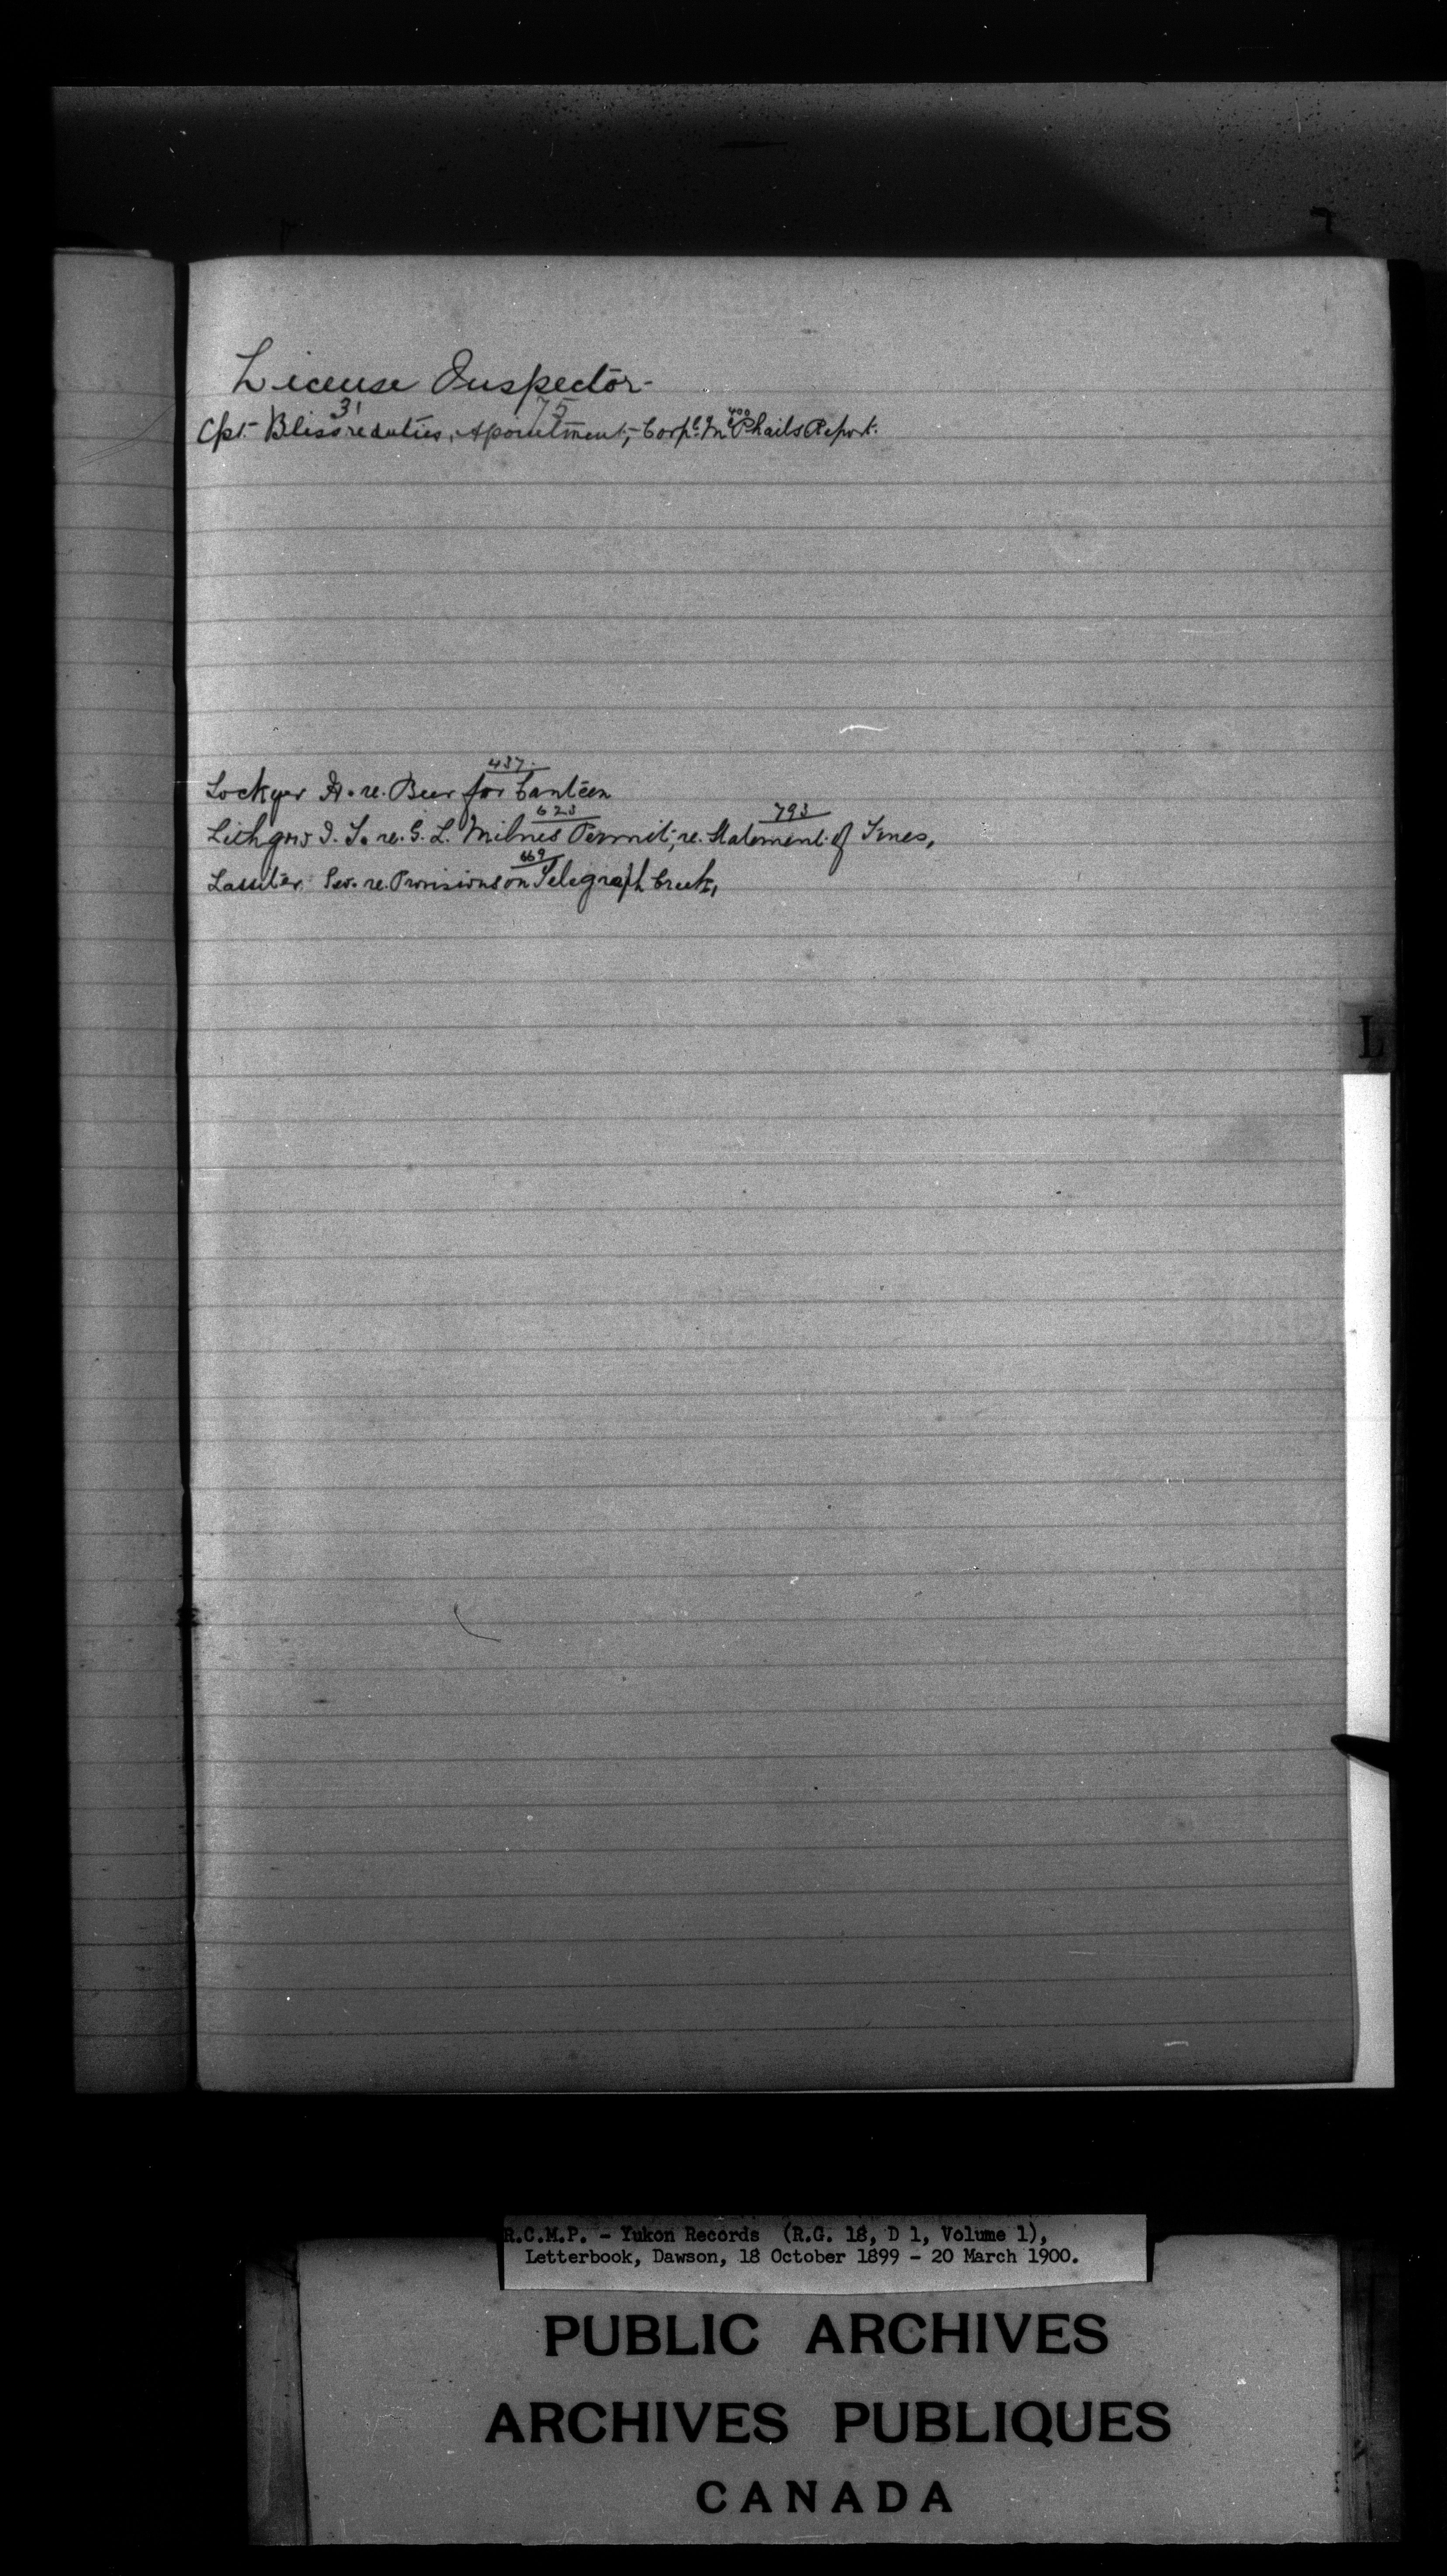 License Inspector-
31 75 400
Cpt. Bliss re duties, Apointment, Corpl. McPhails Report.
437.
Lockyer H. re. Beer for Canteen
623 793
Lithgow J. T. re. G. L. Milnes Permit, re. Statement of Fines,
669
Geo. re. Provisions on Telegraph Creek,
L
R.C.M.P. - Yukon Records (R.G. 18, D 1, Volume 1),
Letterbook, Dawson, 18 October 1899 - 20 March 1900.
PUBLIC ARCHIVES
ARCHIVES PUBLIQUES
CANADA